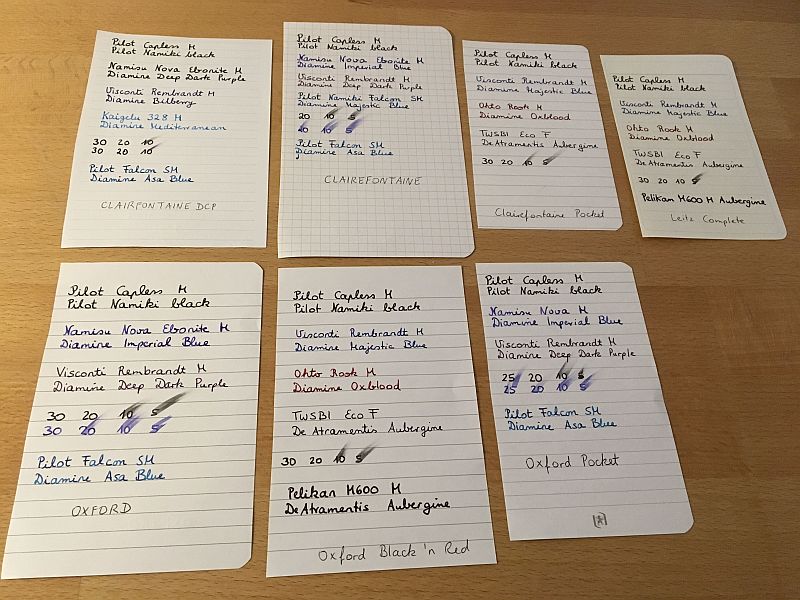 Pilot Capless M
Pilot Namiki black
Namisu Nova Ebonite M
Diamine Deep Dark Purple
Visconti Rembrandt M
Diamine Bilberry
Kaigelu 328 M
Diamine Mediterranean
30 20 10
30 20 10
Pilot Falcon SM
Diamine Asa Blue
CLAIRFONTAINE DCP
Pilot Capless M
Pilot Namiki black
Namisu Nova Ebonite M
Diamine Imperial Blue
Visconti Rembrandt M
Diamine Deep Dark Purple
Pilot Namiki Falcon SM
Diamine Majestic Blue
20 10 5
10 5
Pilot Falcon SM
Diamine Asa Blue
CLAIREFONTAINE
Pilot Capless M
Pilot Namiki black
Visconti Rembrandt M
Diamine Majestic Blue
Ohto Rook M
Diamine Oxblood
TWSBI Eco F
De Atramentis Aubergine
30 20 10 5
Clairefontaine Pocket
Pilot Capless M
Pilot Namiki black
Visconti Rembrandt M
Diamine Majestic Blue
Ohto Rook M
Diamine Oxblood
TWSBI Eco F
De Atramentis Aubergine
30 20 10 5
Pelikan M600 M Aubergine
Leitz Complete
Pilot Capless M
Pilot Namiki black
Namisu Nova Ebonite M
Diamine Imperial Blue
Visconti Rembrandt M
Diamine Deep Dark Purple
30 20 10 5
30 20 10 5
Pilot Falcon SM
Diamine Asa Blue
OXFORD
Pilot Capless M
Pilot Namiki black
Visconti Rembrandt M
Diamine Majestic Blue
Ohto Rook M
Diamine Oxblood
TWSBI Eco F
De Atramentis Aubergine
30 20 10 5
Pelikan M600 M
De Atramentis Aubergine
Oxford Black 'n Red
Pilot Capless M
Pilot Namiki black
Namisu Nova M
Diamine Imperial Blue
Visconti Rembrandt M
Diamine Deep Dark Purple
25 20 10 5
25 20 10 5
Pilot Falcon SM
Diamine Asa Blue
Oxford Pocket